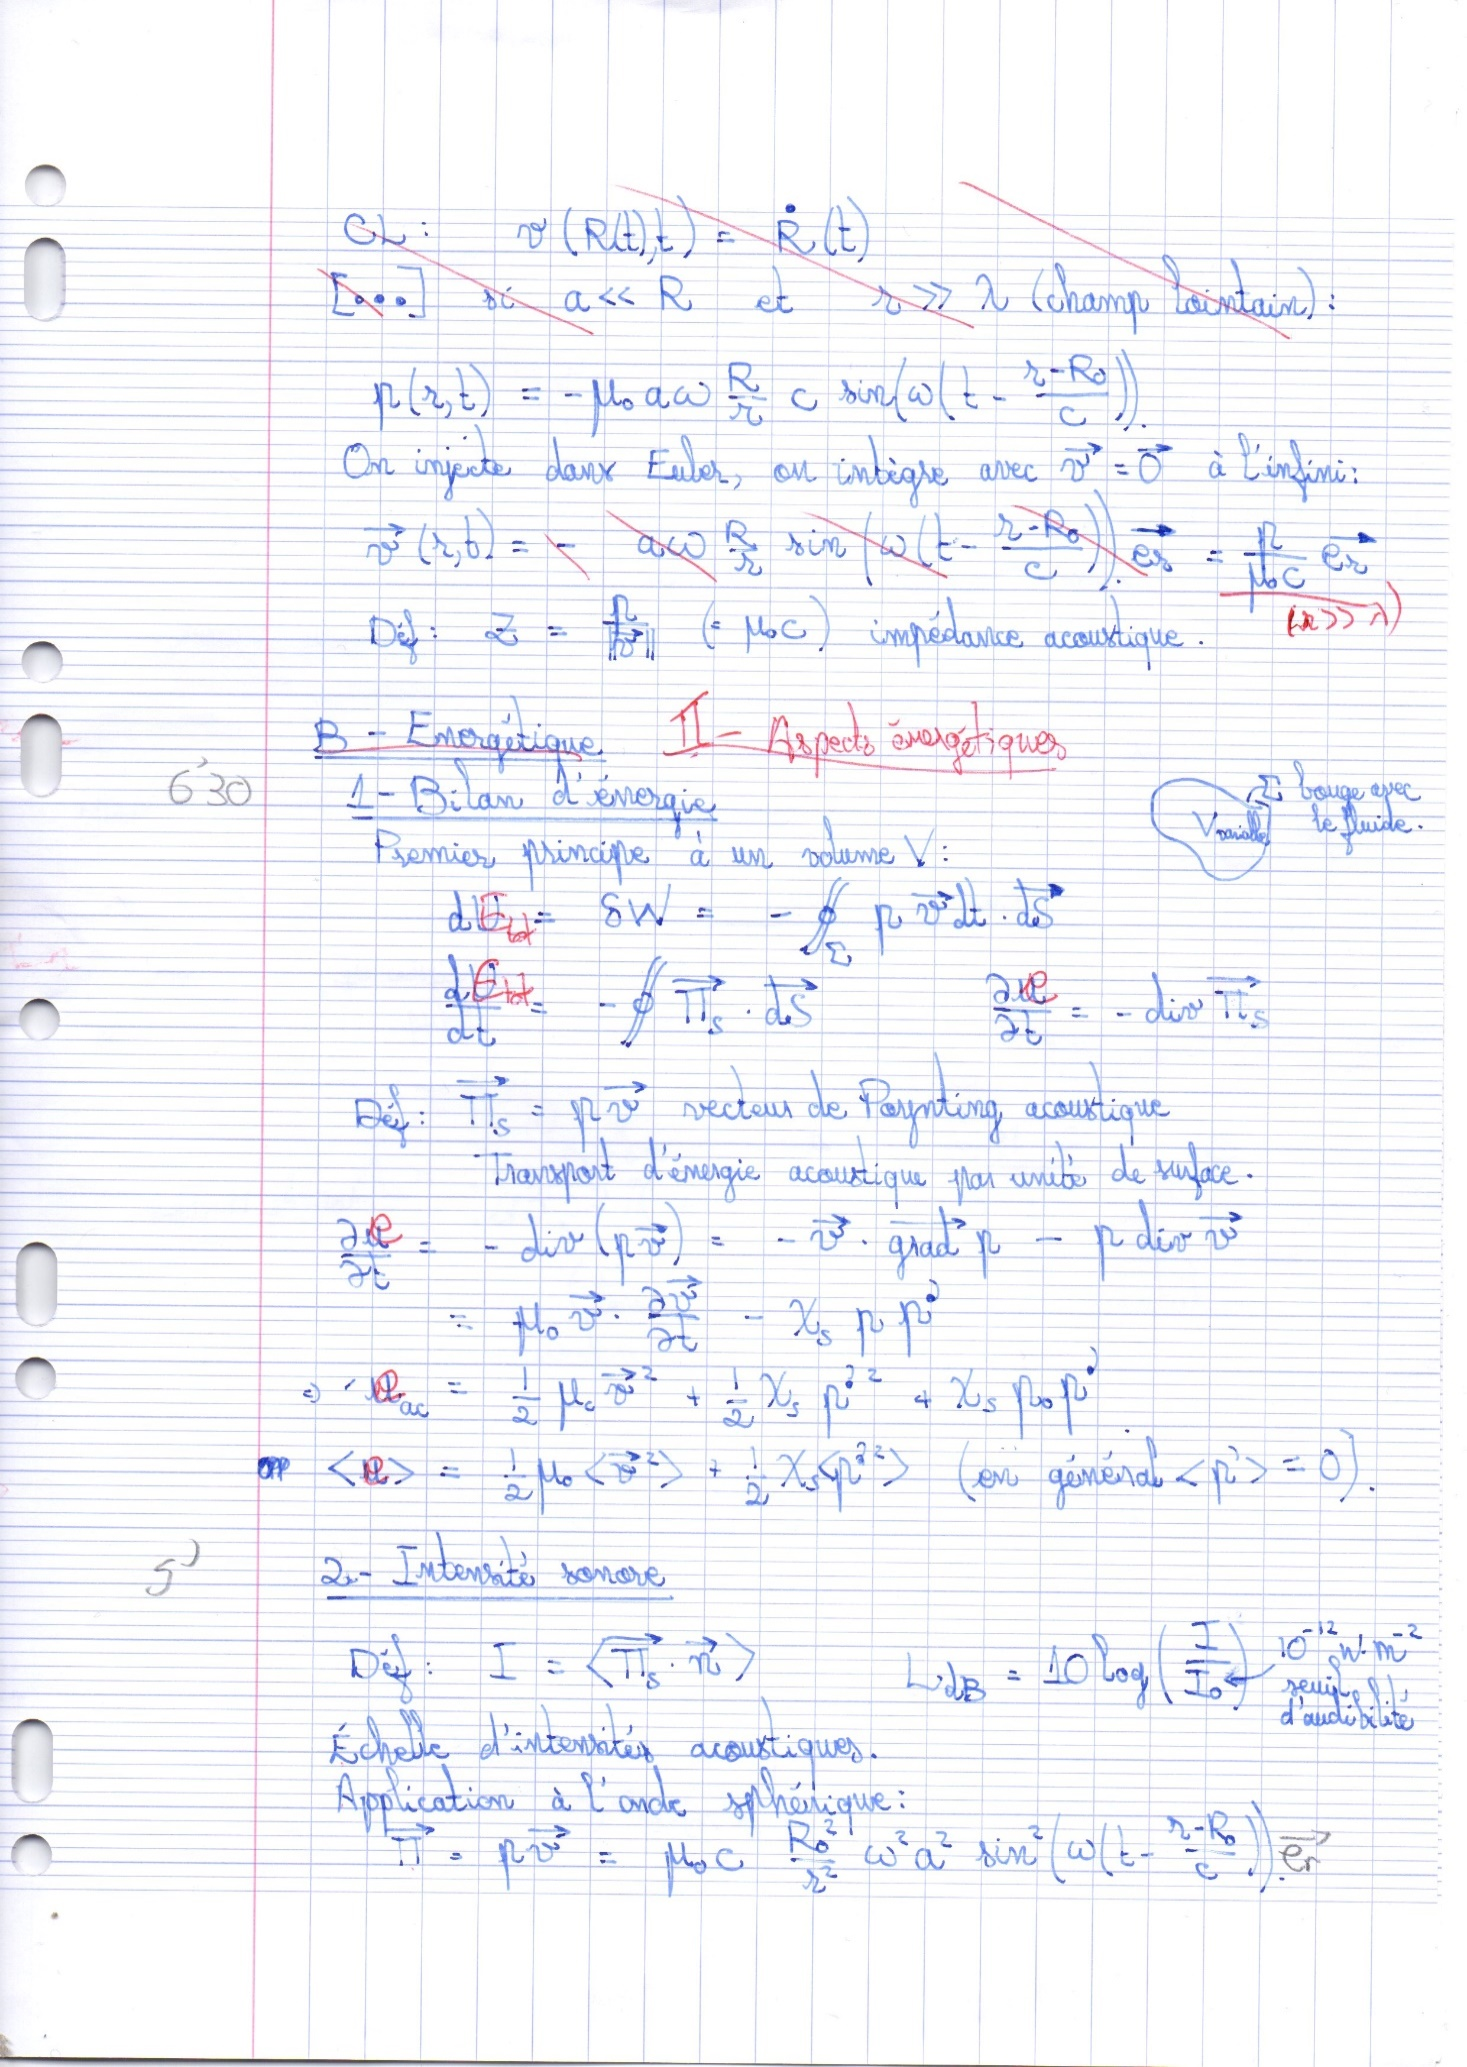 CL : v (R(t),t) = Ṙ (t)
[•••] si a << R et r >> λ (champ lointain) :
p(r,t) = - μ₀ aω R/r c sin(ω(t - (r-R₀)/c)).
On injecte dans Euler, on intègre avec v⃗ = 0⃗ à l'infini :
v⃗ (r,t) = - aω R/r sin (ω(t - (r-R₀)/c)). e⃗r = p/(μ₀c) e⃗r
(r >> λ)
Déf : Z = p/||v⃗|| (= μ₀c) impédance acoustique.
B - Energétique II - Aspects énergétiques
6'30
1 - Bilan d'énergie
Σ bouge avec le fluide.
V variable
Premier principe à un volume V :
dE_tot = δW = - ∯_Σ p v⃗ dt · dS⃗
dE_tot/dt = - ∯ Π⃗s · dS⃗ ∂e/∂t = - div Π⃗s
Déf : Π⃗s = p v⃗ vecteur de Poynting acoustique
Transport d'énergie acoustique par unité de surface.
∂e/∂t = - div (p v⃗) = - v⃗ · grad⃗ p - p div v⃗
= μ₀ v⃗ · ∂v⃗/∂t - χs p p'
⇒ e_ac = 1/2 μ₀ v⃗² + 1/2 χs p'² + χs p₀ p'
<e> = 1/2 μ₀ <v⃗²> + 1/2 χs <p'²> (en général <p'> = 0).
5'
2 - Intensité sonore
Déf : I = <Π⃗s · n⃗> L_dB = 10 log(I/I₀) 10⁻¹² W.m⁻² seuil d'audibilité
Échelle d'intensités acoustiques.
Application à l'onde sphérique :
Π⃗ = p v⃗ = μ₀ c R₀²/r² ω² a² sin² (ω(t - (r-R₀)/c)). e⃗r